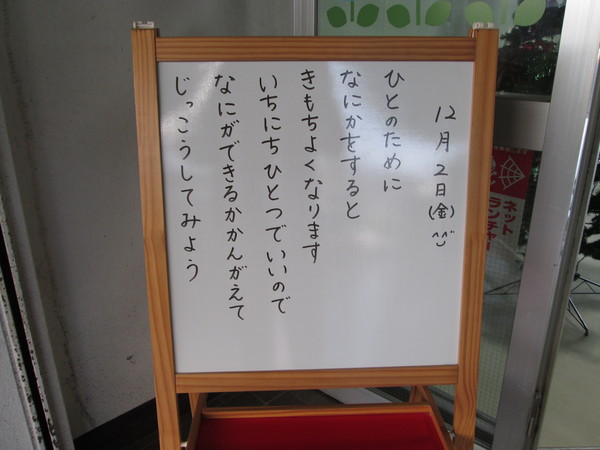 12月2日(金)^^
ひとのために
なにかをすると
きもちよくなります
いちにちひとつでいいので
なにができるかかんがえて
じっこうしてみよう
ネット
ランチャー